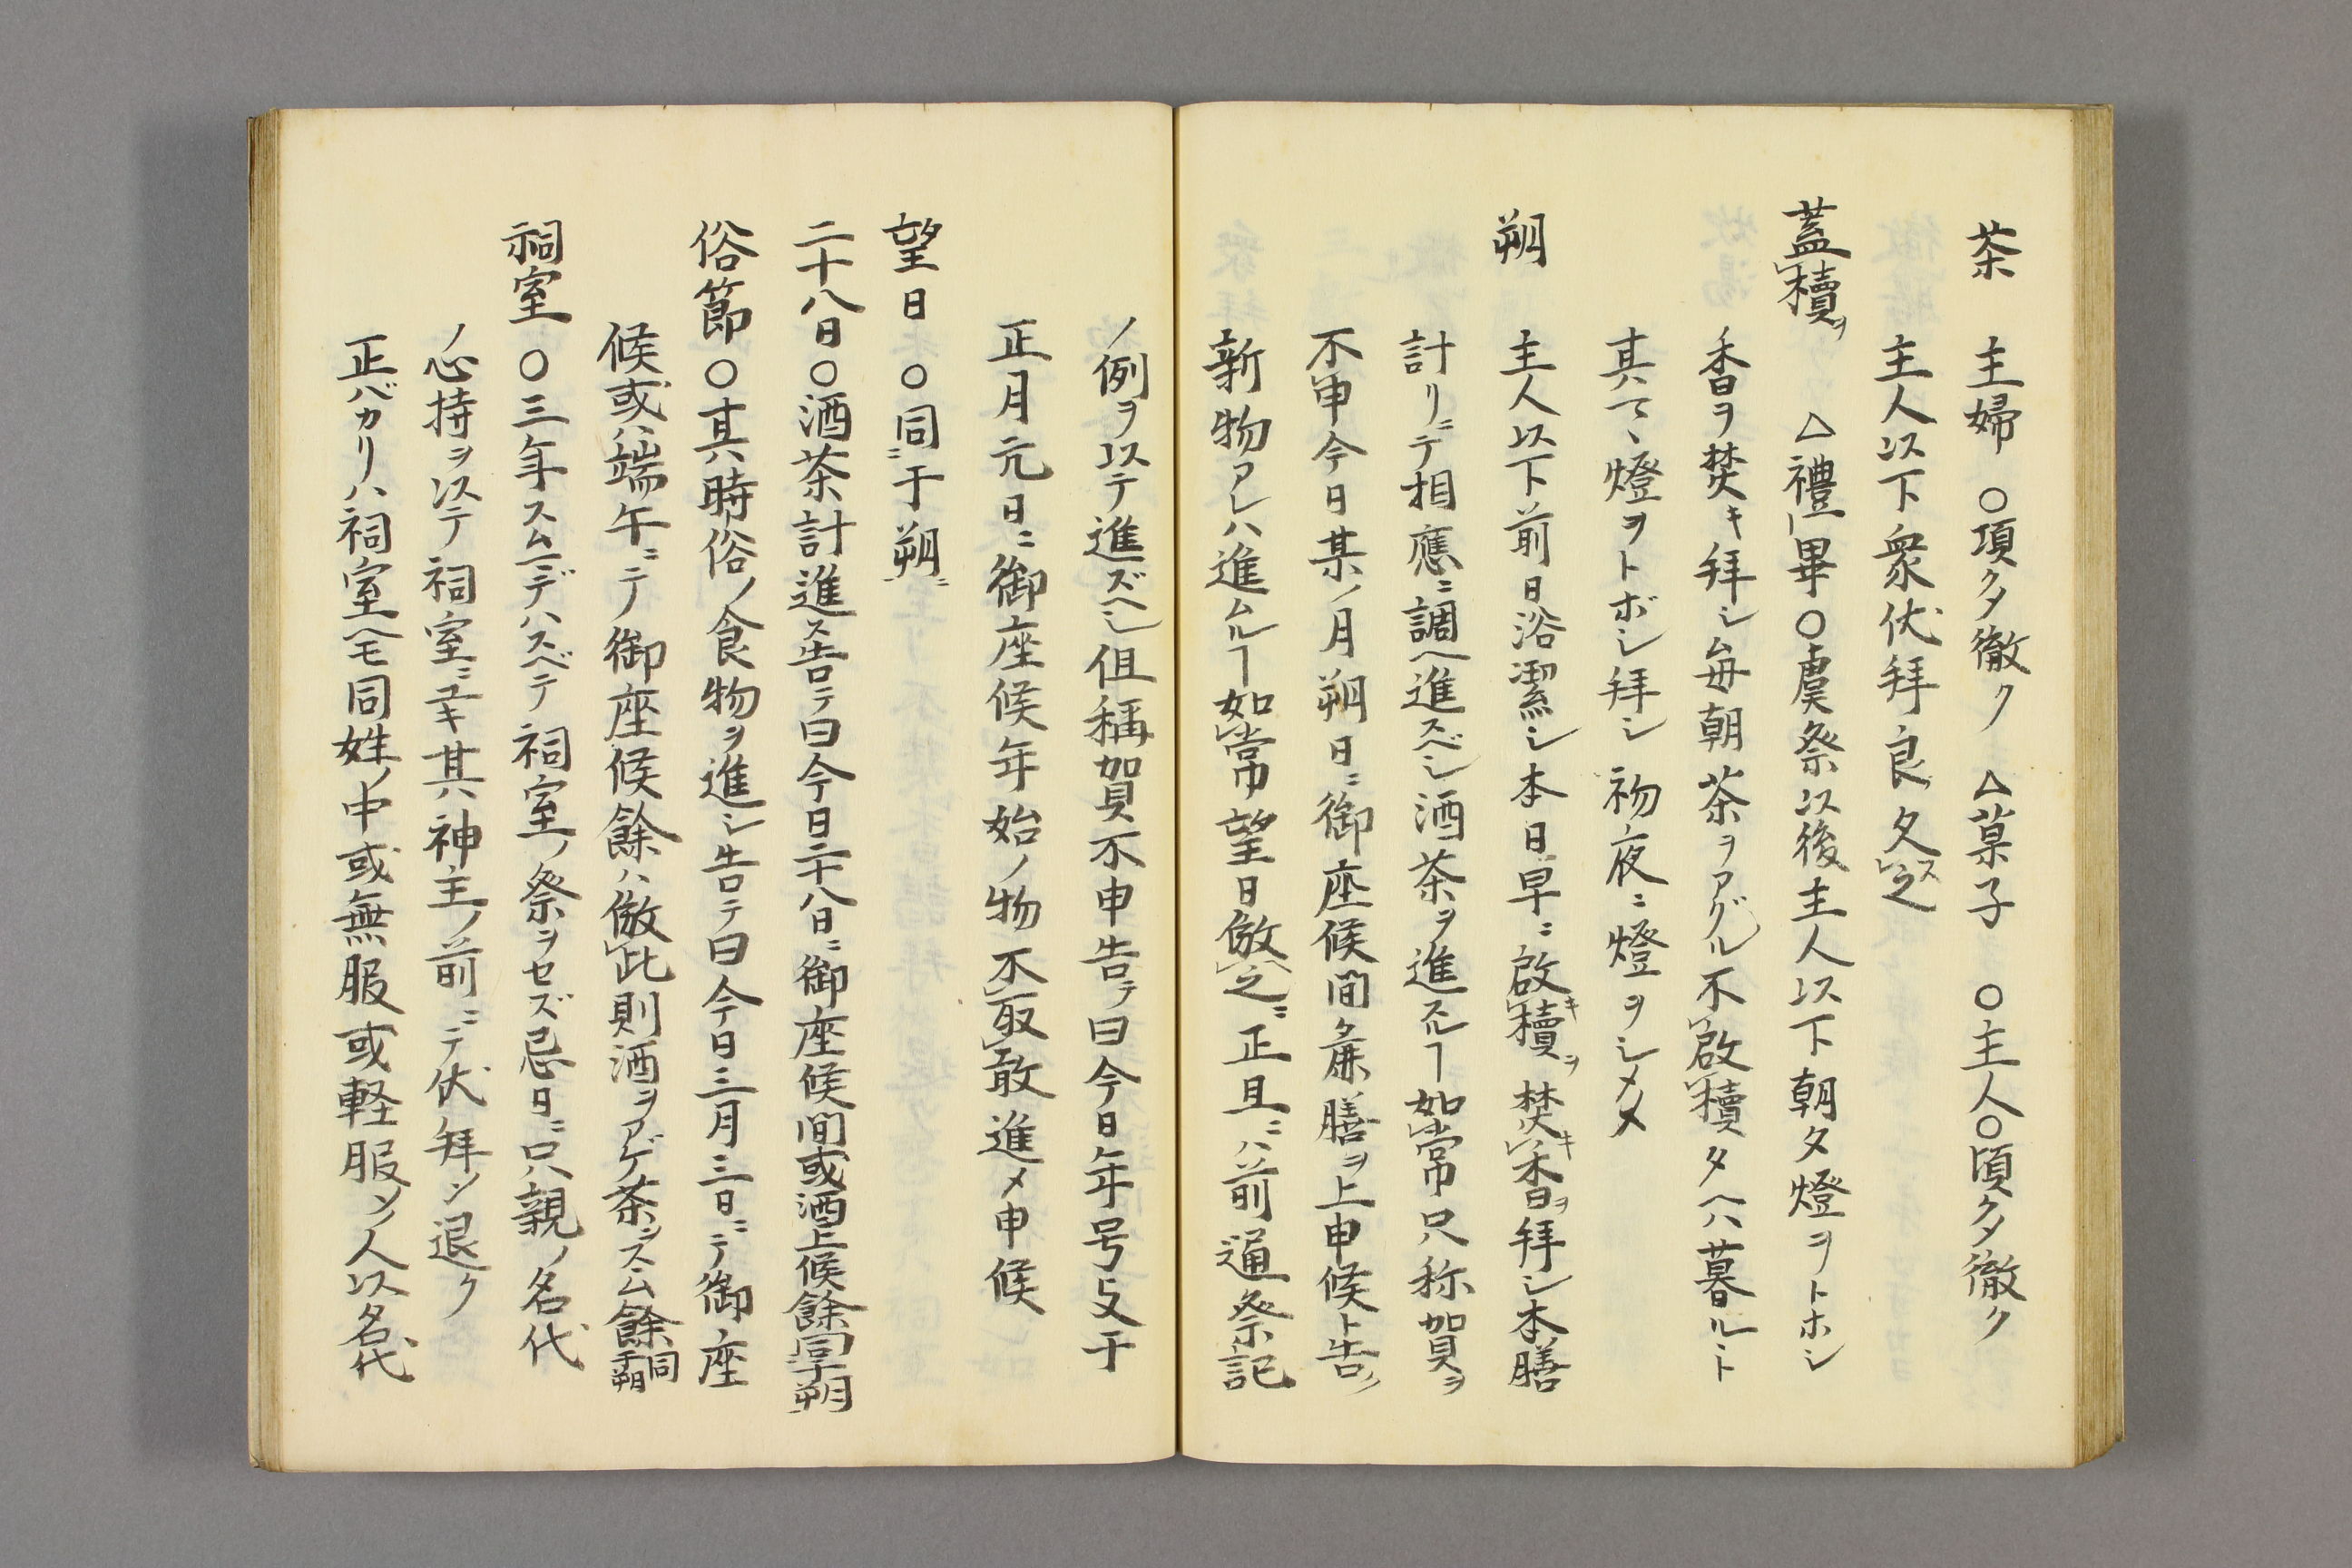 茶　主婦　○項クタ徹ク　△菓子　○主人○頃クタ徹ク
主人以下衆伏拜良久スレ之
蓋レ櫝ヲ　△禮レ畢○虞祭以後主人以下朝夕燈ヲトホシ
香ヲ焚キ拜シ毎朝茶ヲアグル不レ啟レ櫝タヘハ暮ルト
其マヽ燈ヲトボシ拜シ初夜ニ燈ヲシメメ
朔　主人以下前日浴潔シ本日早ニ啟キレ櫝ヲ焚キレ香ヲ拜シ本膳
計リニテ相應ニ調ヘ進スベシ酒茶ヲ進スルヿ如レ常只称賀ヲ
不レ申今日某ノ月朔日ニ御座候間麁膳ヲ上申候ト告ノ
新物アレハ進ムルヿ如レ常望日倣レ之ニ正旦ニハ前通祭記
ノ例ヲ以テ進ズヘシ但稱賀不申告テ曰今日年号支干
正月元日ニ御座候年始ノ物不レ取レ敢進メ申候
望日　○同ニ于朔ニ
二十八日○酒茶計進ス告テ曰今日二十八日ニ御座候間或酒上候餘同于朔
俗節○其時俗ノ食物ヲ進シ告テ曰今日三月三日ニテ御座
候或ハ端午ニテ御座候餘ハ倣レ此則酒ヲアゲ茶ヲスヽム餘同于朔
祠室　○三年スムマデハスベテ祠室ノ祭ヲセズ忌日ニ只親ノ名代
ノ心持ヲ以テ祠室ニユキ其神主ノ前ニテ伏拜シ退ク
正バカリハ祠室ヘモ同姓ノ中或無服或軽服ノ人以名代